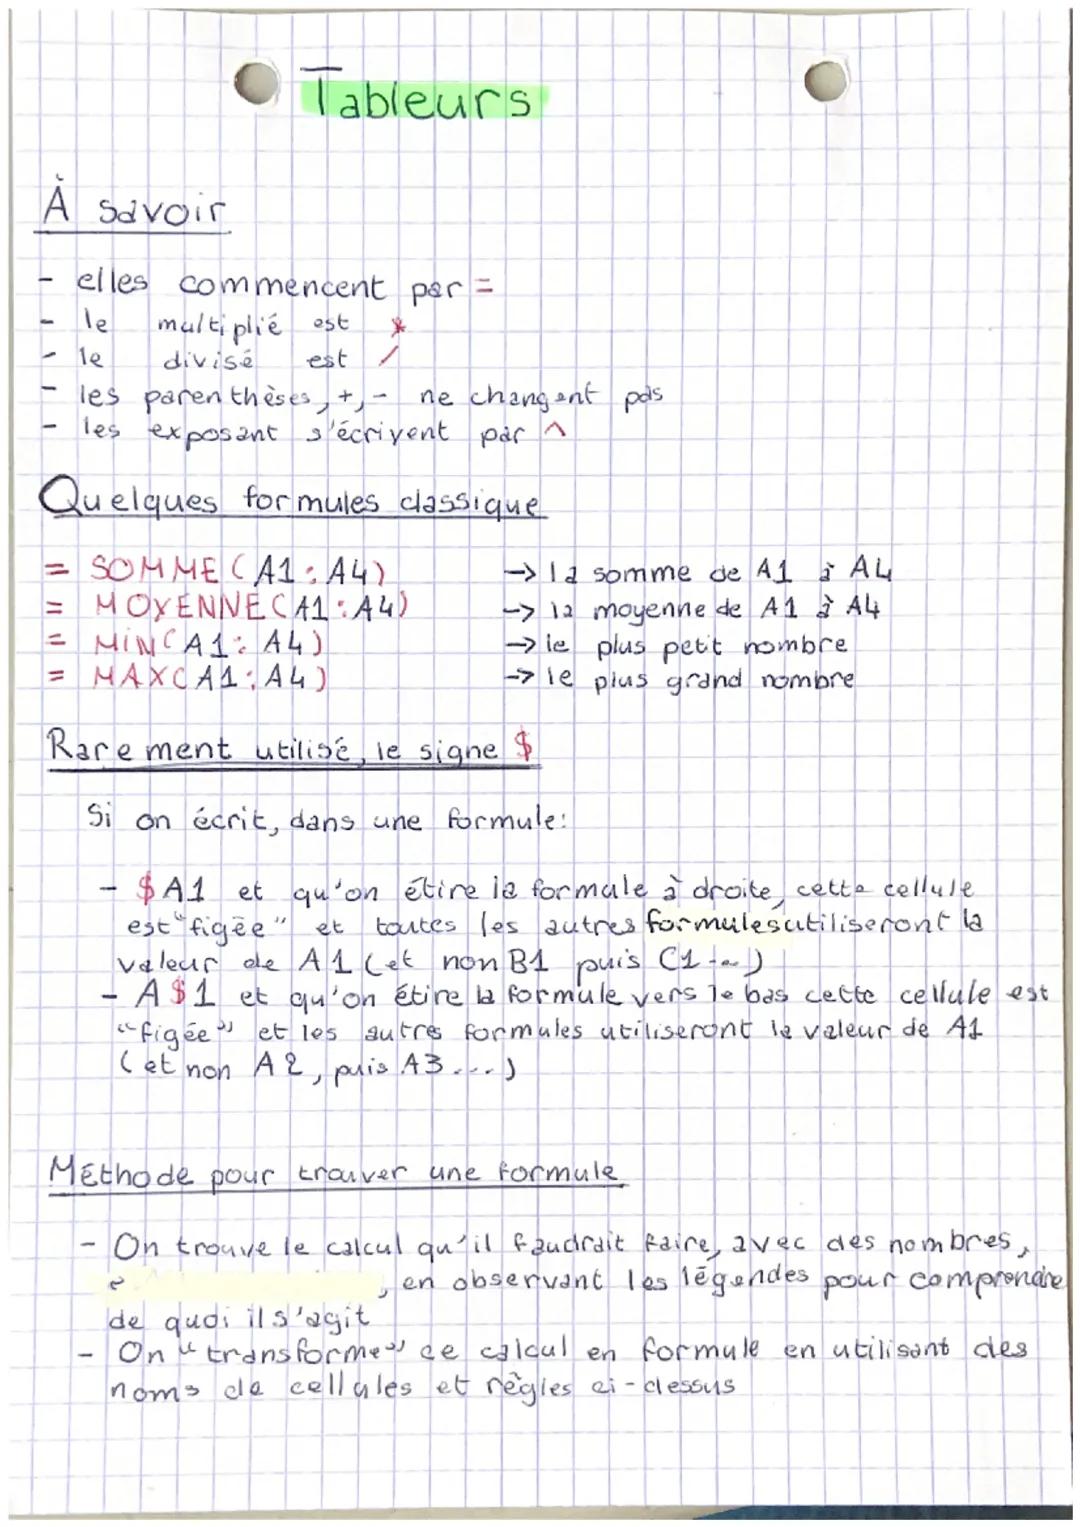 Tableurs
À savoir
- elles commencent par =
- le multiplié est *
- le divisé est /
- les parenthèses, +, - ne changent pas
- les exposant s'écrivent par ^
Quelques formules classique
= SOMME (A1 : A4) → la somme de A1 à A4
= MOYENNE (A1 : A4) → la moyenne de A1 à A4
= MIN (A1 : A4) → le plus petit nombre
= MAX (A1 : A4) → le plus grand nombre
Rarement utilisé, le signe $
Si on écrit, dans une formule:
- $A1 et qu'on étire la formule à droite, cette cellule
est "figée" et toutes les autres formules utiliseront la
valeur de A1 (et non B1 puis C1 ...)
- A$1 et qu'on étire la formule vers le bas cette cellule est
"figée" et les autres formules utiliseront la valeur de A1
(et non A2, puis A3 ....)
Méthode pour trouver une formule
- On trouve le calcul qu'il faudrait faire, avec des nombres,
e , en observant les légendes pour comprendre
de quoi il s'agit
- On "transforme" ce calcul en formule en utilisant des
noms de cellules et règles ci-dessus